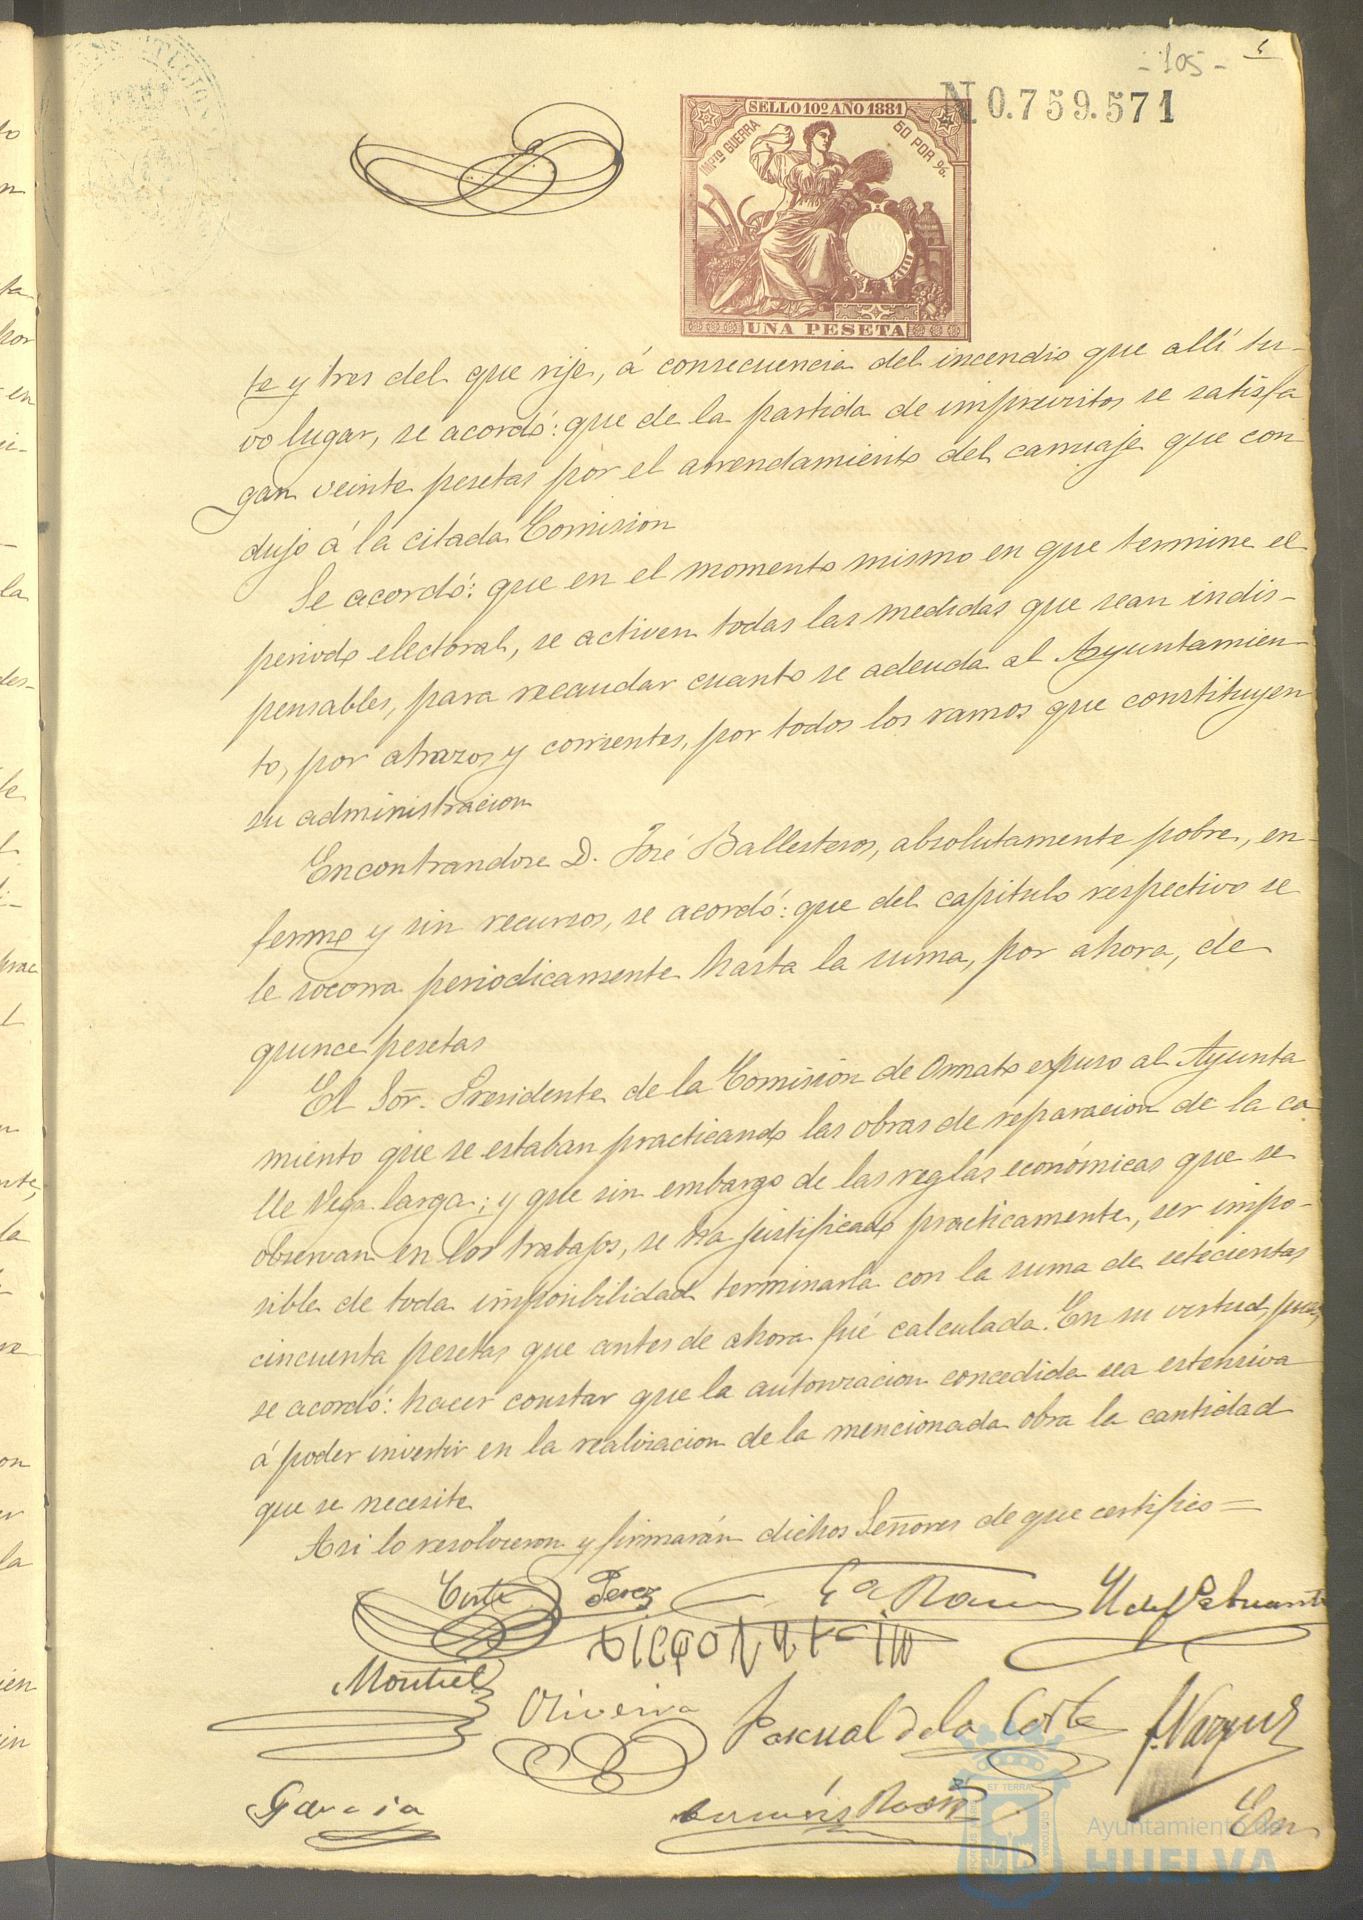 - 105 -
N 0.759.571
SELLO 10º AÑO 1881
IMPTO GUERRA
50 POR %.
UNA PESETA
te y tres del que rije, á consecuencia del incendio que allí tu-
vo lugar, se acordó: que de la partida de imprevistos se satisfa
gan veinte pesetas por el arrendamiento del carruaje que con
dujo á la citada Comision
Se acordó: que en el momento mismo en que termine el
periodo electoral, se activen todas las medidas que sean indis-
pensables, para recaudar cuanto se adeuda al Ayuntamien-
to, por atrazos y corrientes, por todos los ramos que constituyen
su administracion
Encontrandose D. José Ballesteros, absolutamente pobre, en-
fermo y sin recursos, se acordó: que del capitulo respectivo se
le socorra periodicamente hasta la suma, por ahora, de
quince pesetas
El Sor. Presidente de la Comisión de Ornato expuso al Ayunta
miento que se estaban practicando las obras de reparacion de la ca
lle Vega larga; y que sin embargo de las reglas económicas que se
observan en los trabajos, se ha justificado practicamente, ser impo-
sible de toda imposibilidad terminarla con la suma de setecientas
cincuenta pesetas que antes de ahora fué calculada. En su virtud, pues,
se acordó: hacer constar que la autorizacion concedida sea estensiva
á poder invertir en la realizacion de la mencionada obra la cantidad
que se necesite
Asi lo resolvieron y firmarán dichos Señores de que certifico =
Corte Perez Gª Ramos
Montiel Oliveira Pascual de la Corte F. Vazquez
Garcia
En
ET TERRAE
Ayuntamiento de
HUELVA